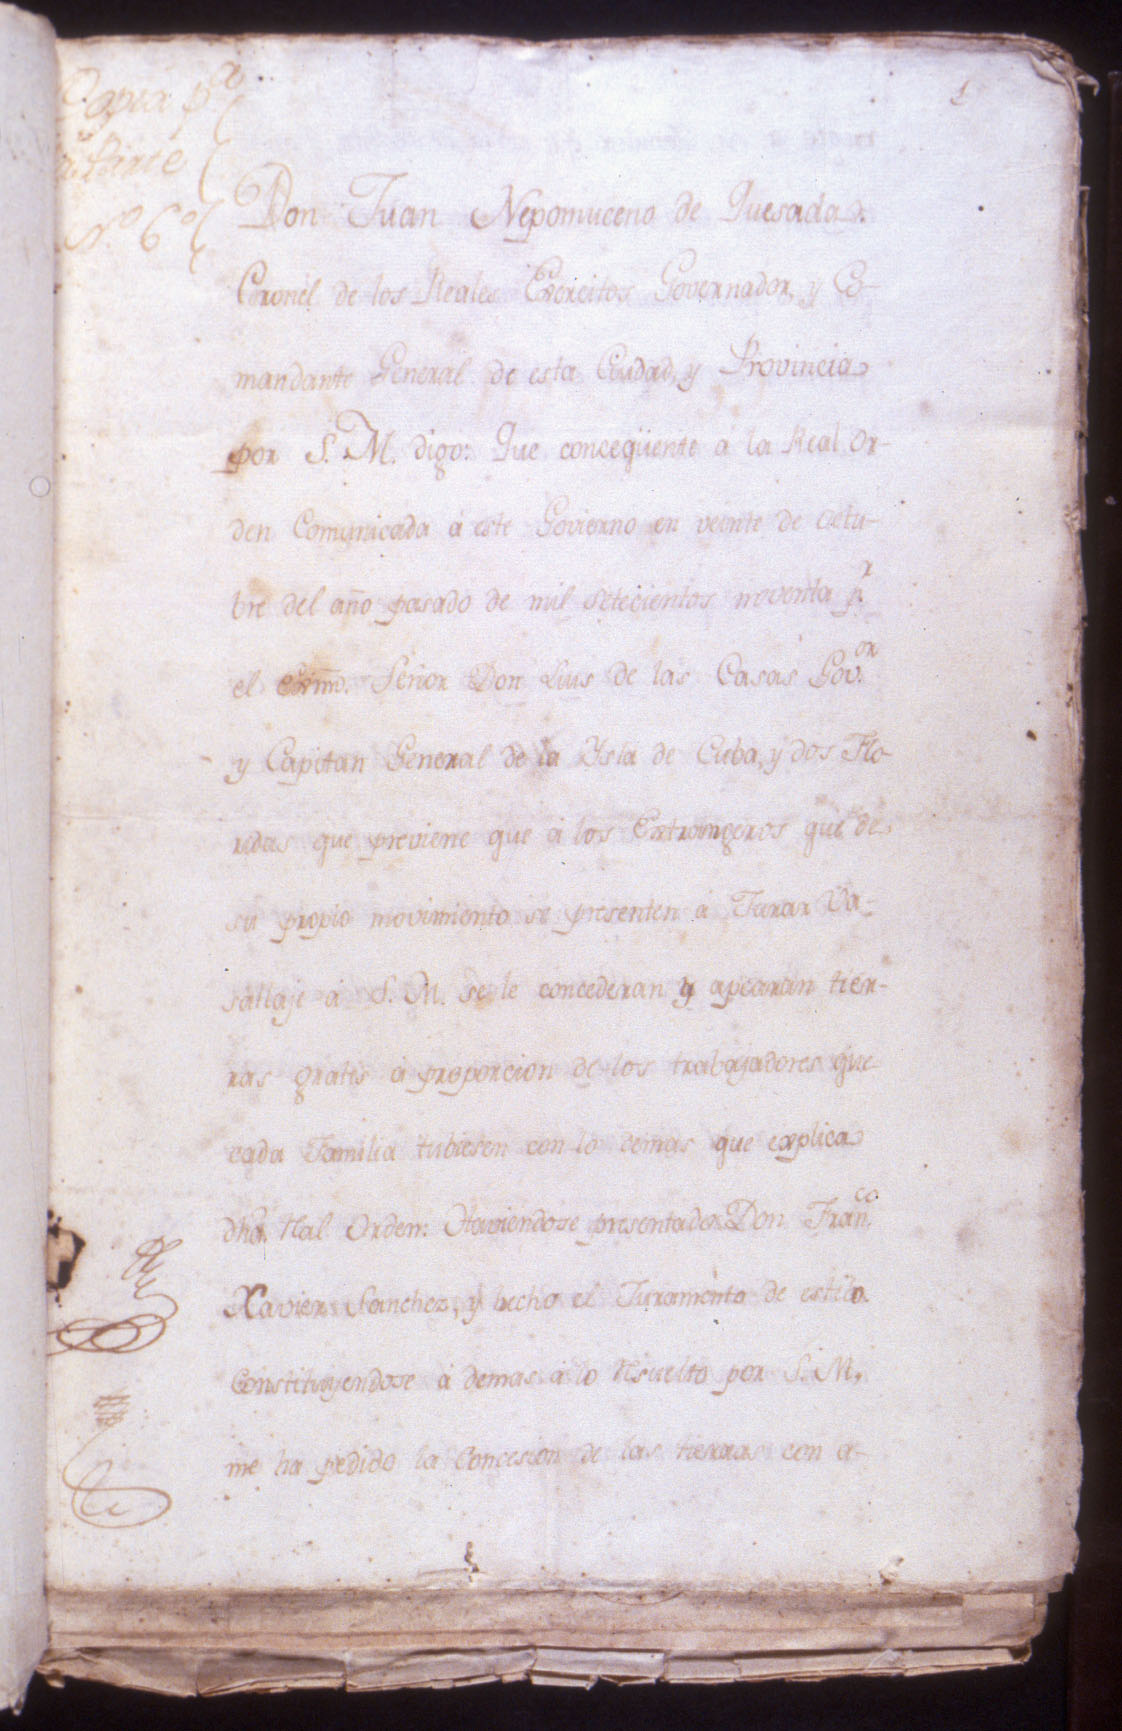 Copia p.a
la Parte
N.o 6.o
1
Don Juan Nepomuceno de Quesada
Coronel de los Reales Exercitos Governador, y Co-
mandante General de esta Ciudad, y Provincia
por S. M. digo: Que conceqüente á la Real Or-
den Comunicada á este Govierno en veinte de Octu-
bre del año pasado de mil setecientos noventa p.r
el Exmô. Señor Don Luis de las Casas Gov.or
y Capitan General de la Ysla de Cuba, y dos Flo-
ridas que previene que á los Extrangeros que de
su propio movimiento se presenten á Jurar Va-
sallaje á S. M. se le concederan y apearan tier-
ras gratis á proporcion de los trabajadores que
cada Familia tubiesen con lo demas que explica
dhã. Ral Orden: Haviendose presentado Don Fran.co
Xavier Sanchez, y hecho el Juramento de estilo
Constituyendose á demas á lo Resuelto por S. M,
me ha pedido la Concesion de las tierras con a-